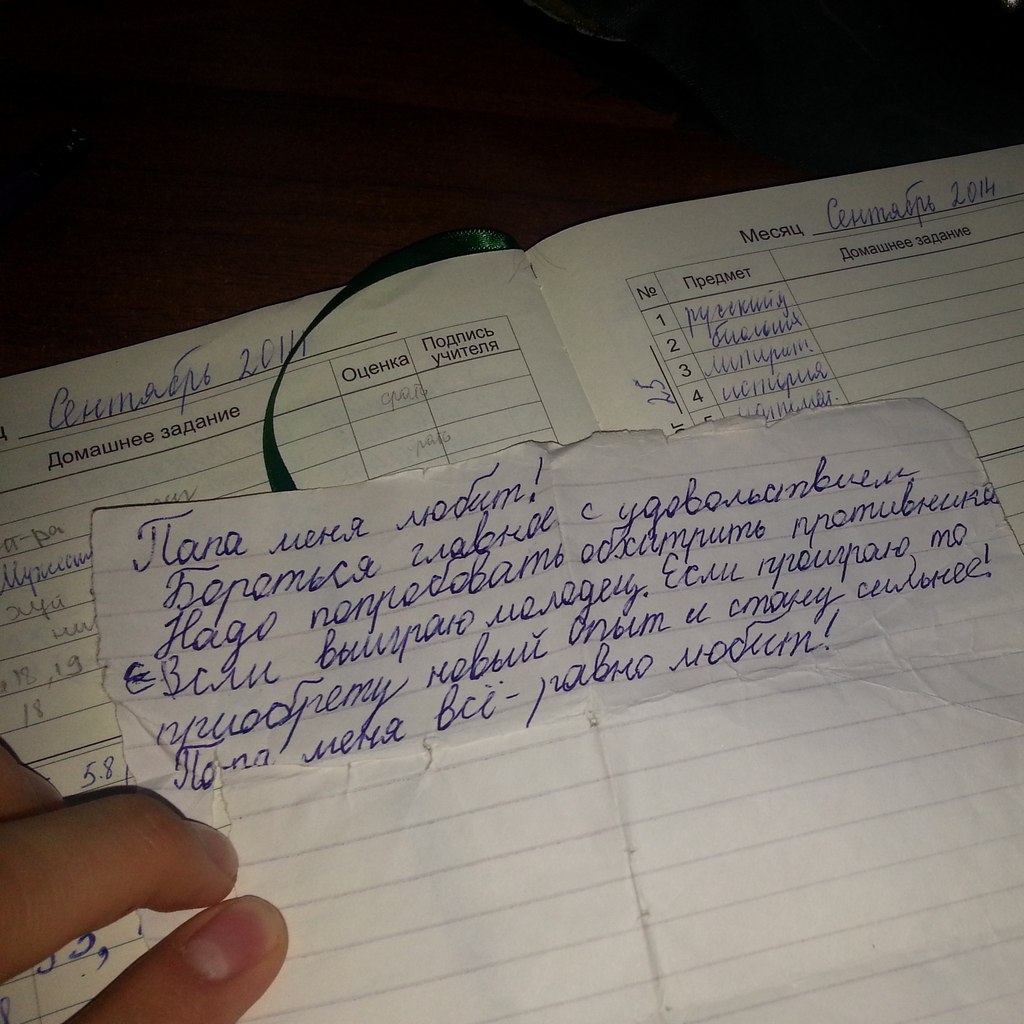 Месяц Сентябрь 2014
Домашнее задание
№ Предмет
1 русский
2 биология
3 литерат.
4 история
5
25
Сентябрь 2014
Домашнее задание
Оценка
Подпись учителя
Папа меня любит!
Бороться главное с удовольствием
Надо попробовать обхитрить противника
Если выиграю молодец. Если проиграю, то
приобрету новый опыт и стану сильнее!
Папа меня всё-равно любит!
18, 19
18
5.8